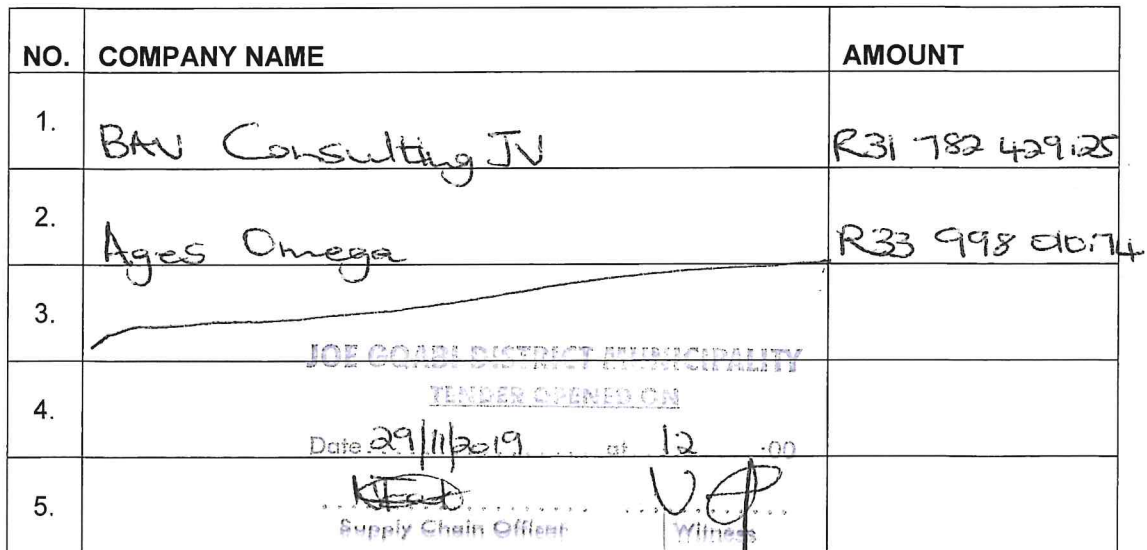 NO. COMPANY NAME AMOUNT
1. BAV Consulting JV R31 782 429.25
2. Ages Omega R33 998 010.74
3.
JOE GQABI DISTRICT MUNICIPALITY
TENDER OPENED ON
4.
Date 29/11/2019 at 12 :00
5.
Supply Chain Officer Witness